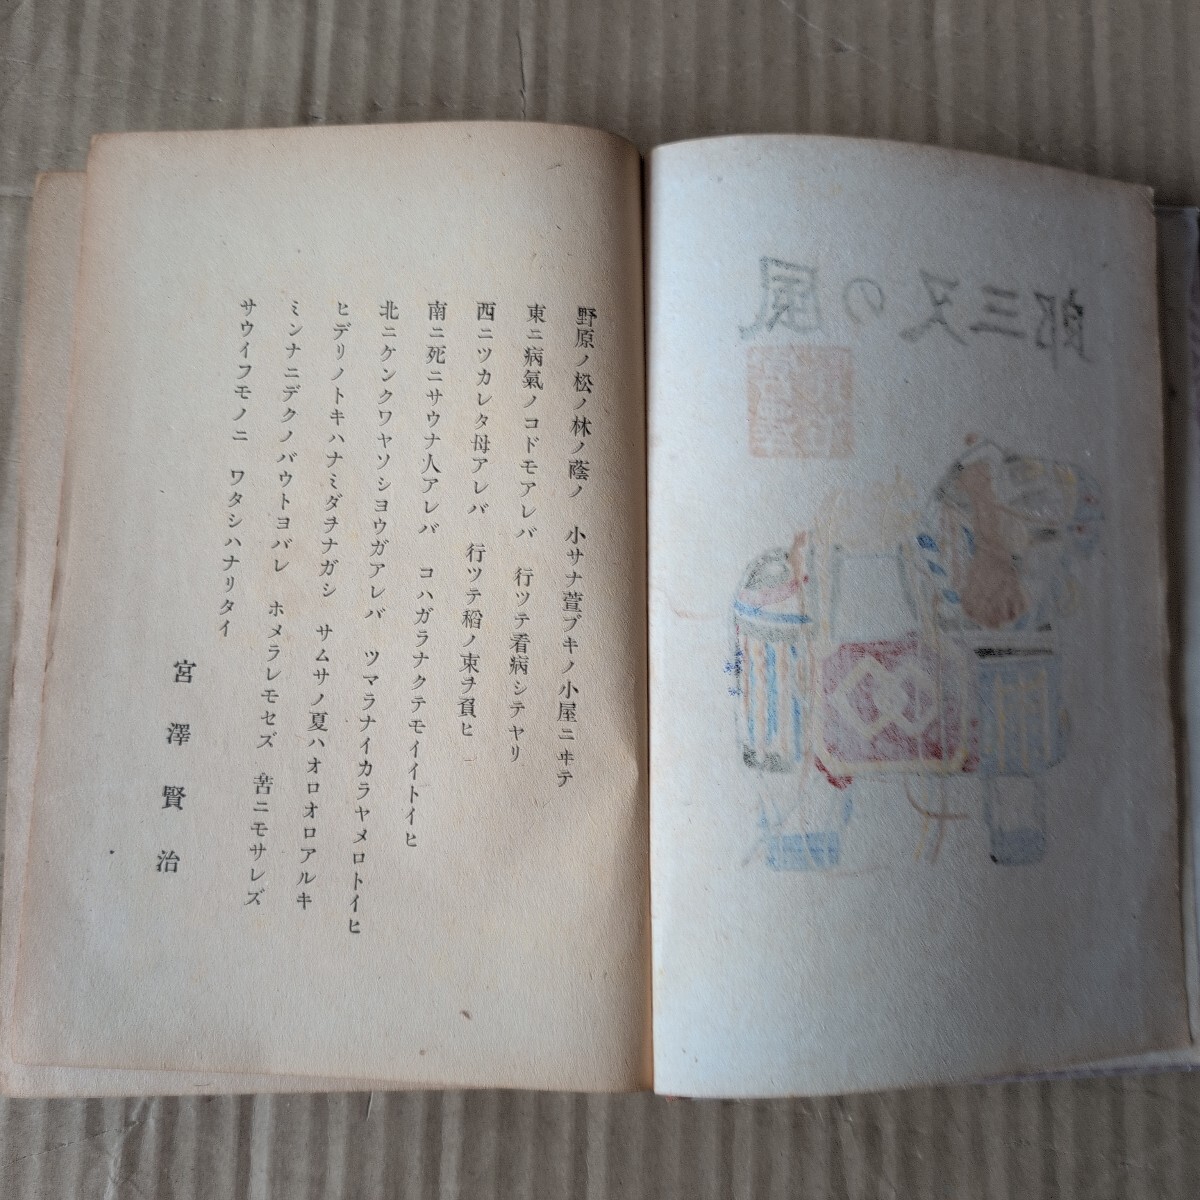 風の又三郎
野原ノ松ノ林ノ蔭ノ　小サナ萱ブキノ小屋ニヰテ
東ニ病氣ノコドモアレバ　行ツテ看病シテヤリ
西ニツカレタ母アレバ　行ツテ稻ノ束ヲ負ヒ
南ニ死ニサウナ人アレバ　コハガラナクテモイイトイヒ
北ニケンクワヤソシヨウガアレバ　ツマラナイカラヤメロトイヒ
ヒデリノトキハナミダヲナガシ　サムサノ夏ハオロオロアルキ
ミンナニデクノバウトヨバレ　ホメラレモセズ　苦ニモサレズ
サウイフモノニ　ワタシハナリタイ
宮澤賢治